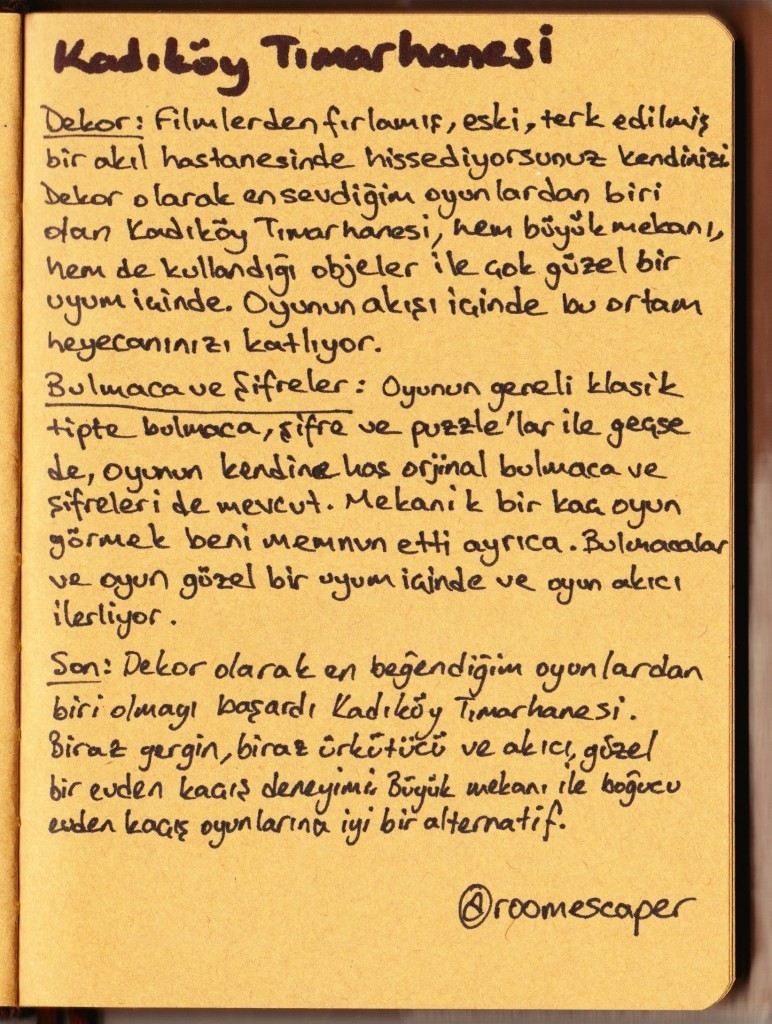 Kadıköy Tımarhanesi
Dekor: Filmlerden fırlamış, eski, terk edilmiş
bir akıl hastanesinde hissediyorsunuz kendinizi
Dekor olarak en sevdiğim oyunlardan biri
olan Kadıköy Tımarhanesi, hem büyük mekanı,
hem de kullandığı objeler ile çok güzel bir
uyum içinde. Oyunun akışı içinde bu ortam
heyecanınızı katlıyor.
Bulmaca ve Şifreler: Oyunun geneli klasik
tipte bulmaca, şifre ve puzzle'lar ile geçse
de, oyunun kendine has orjinal bulmaca ve
şifreleri de mevcut. Mekanik bir kaç oyun
görmek beni memnun etti ayrıca. Bulmacalar
ve oyun güzel bir uyum içinde ve oyun akıcı
ilerliyor.
Son: Dekor olarak en beğendiğim oyunlardan
biri olmayı başardı Kadıköy Tımarhanesi.
Biraz gergin, biraz ürkütücü ve akıcı, güzel
bir evden kaçış deneyimi. Büyük mekanı ile boğucu
evden kaçış oyunlarına iyi bir alternatif.
@roomescaper